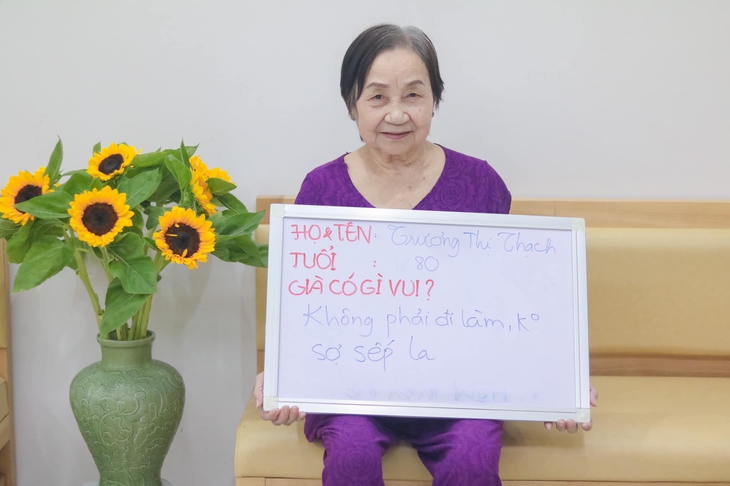 HỌ & TÊN: Trương Thị Thạch
TUỔI : 80
GIÀ CÓ GÌ VUI?
Không phải đi làm, kº
sợ sếp la